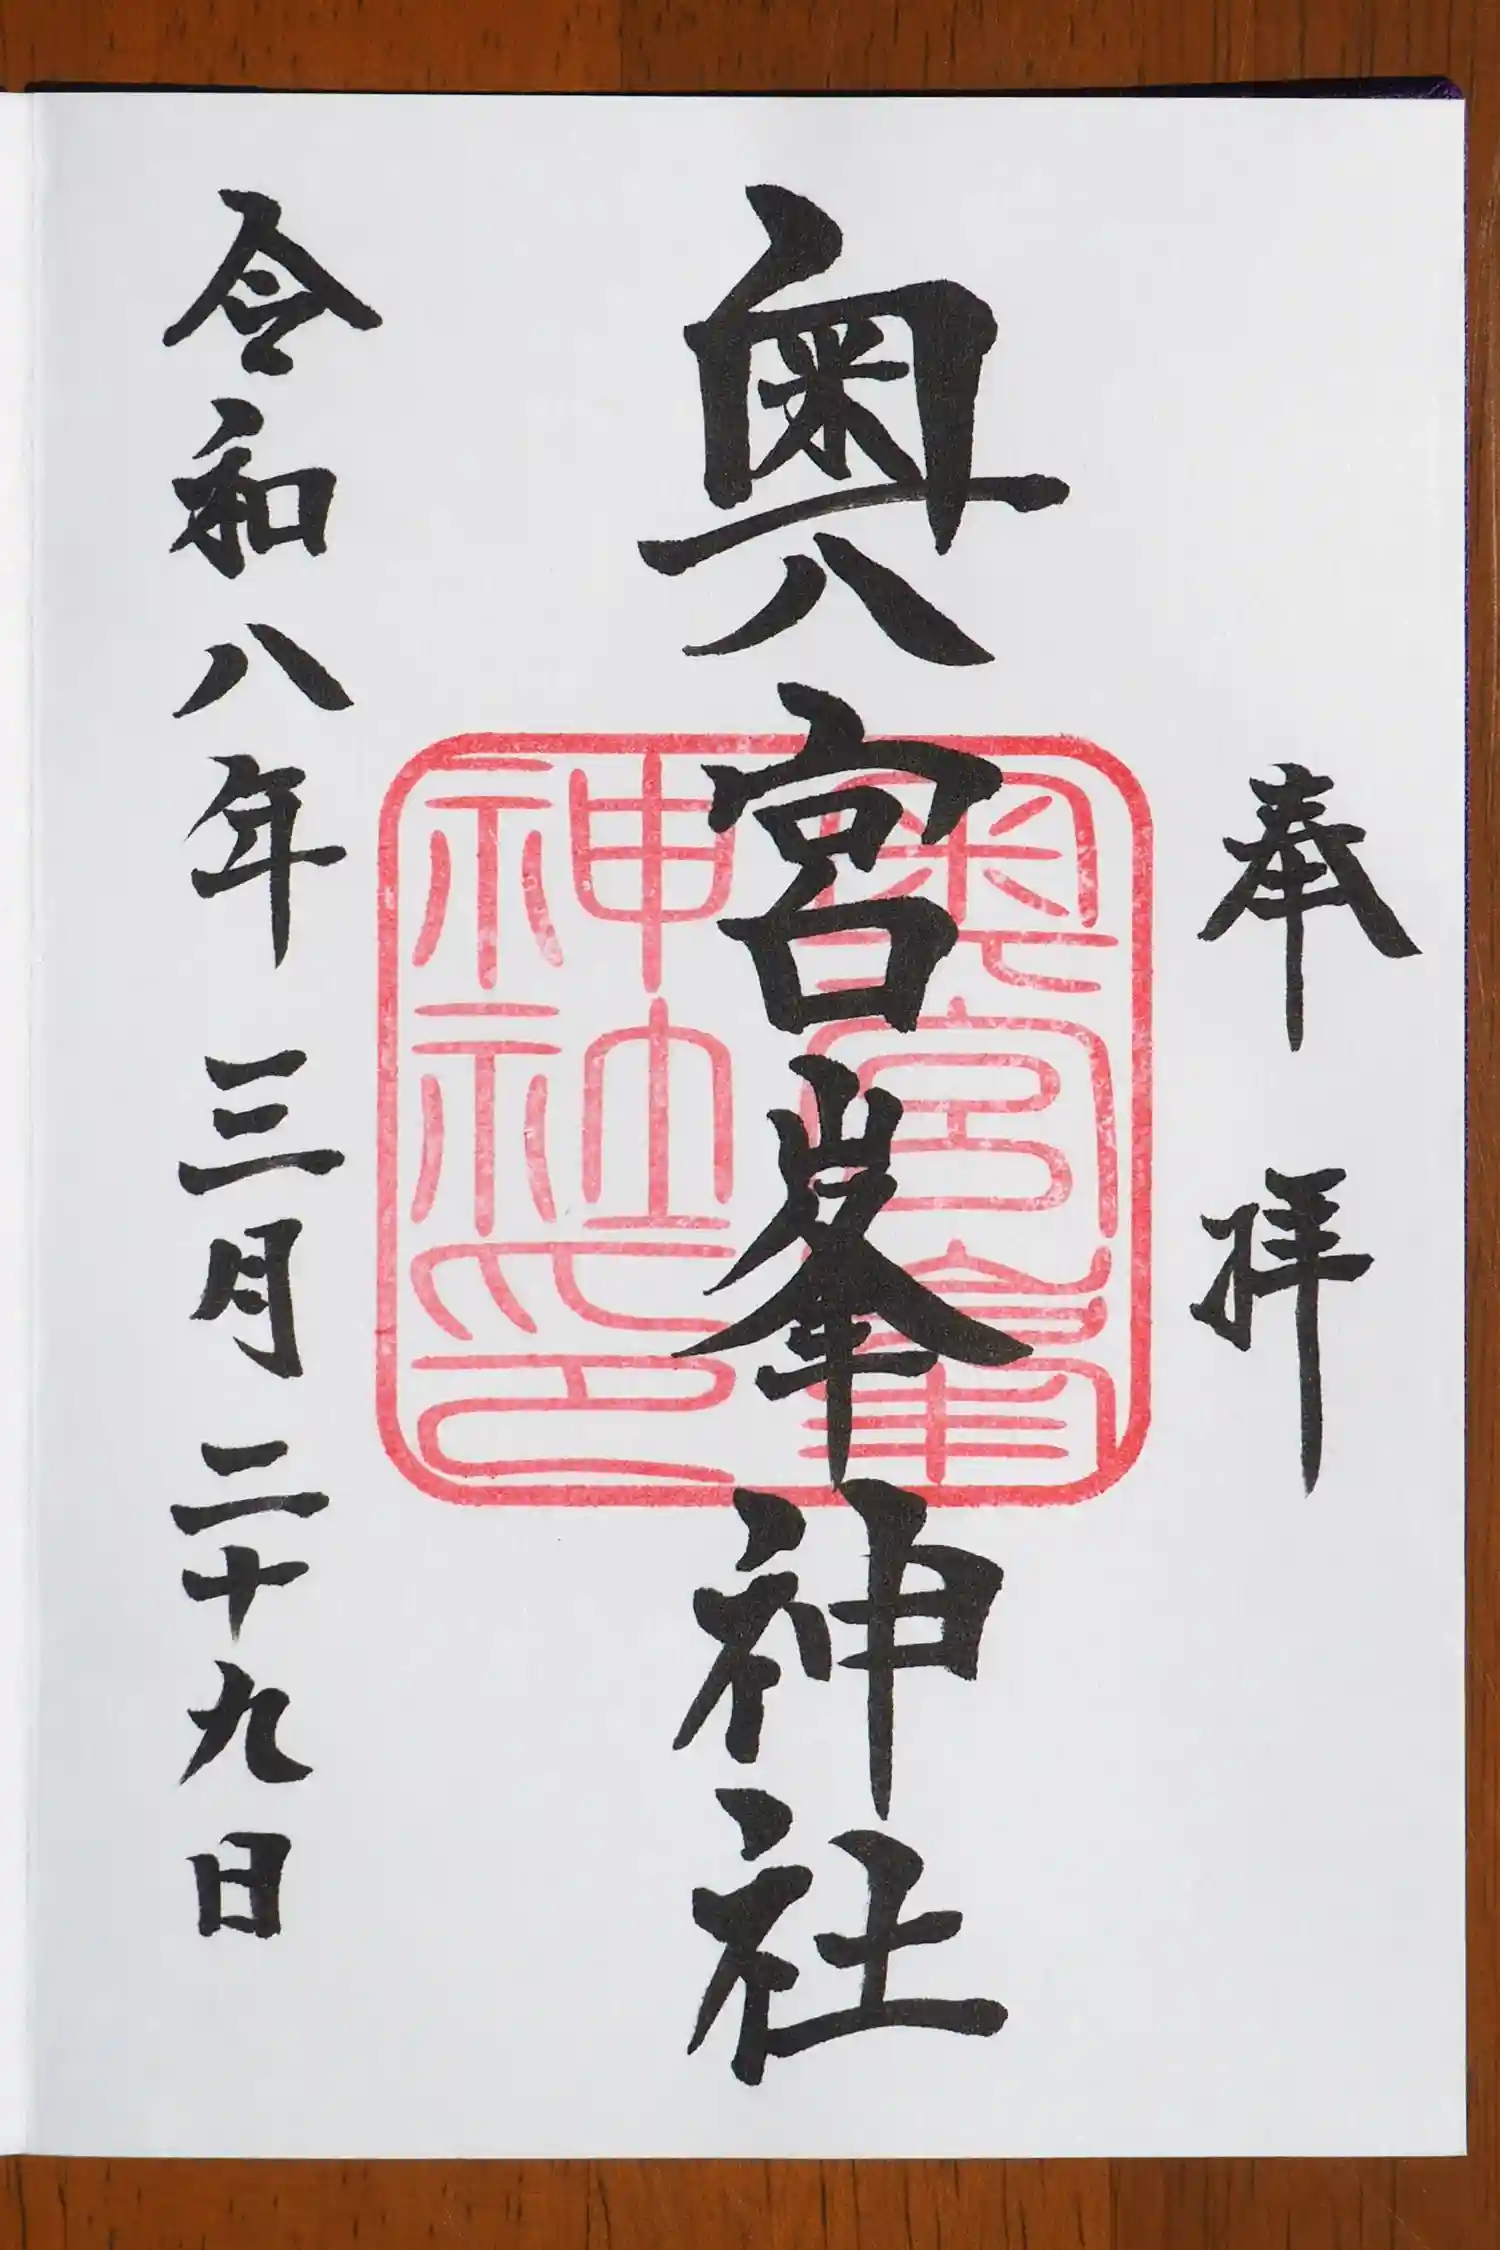 奉拝
奥宮峯神社
奥宮峯
神社印
令和八年三月二十九日